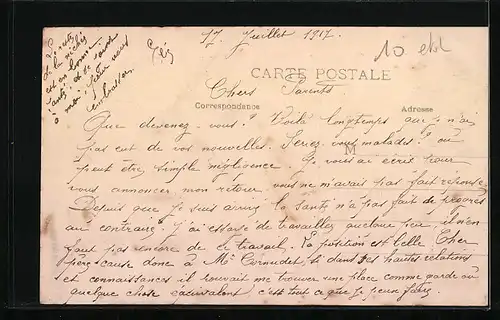 17 Juillet 1917.
10 etbl
CARTE POSTALE
Chers Parents
Correspondance
Adresse
Que devenez-vous? Voilà longtemps que je n'ai
pas eut de vos nouvelles. Seriez-vous malades? ou
peut être simple négligence. Je vous ai écrit pour
vous annoncer mon retour vous ne m'avais pas fait réponse.
Depuis que je suis arrivé la santé n'a pas fait de progrès
au contraire. J'ai essaisé de travailler quelque peu, il n'en
faut pas encore de le travail. La position est belle. Cher
père cause donc à Mr Cornudet, si dans ses hautes relations
et connaissances il pouvait me trouver une place comme garde ou
quelque chose équivalent c'est tout ce que je peux faire.
et la
est en bonne
santé et
à mon
embrasser